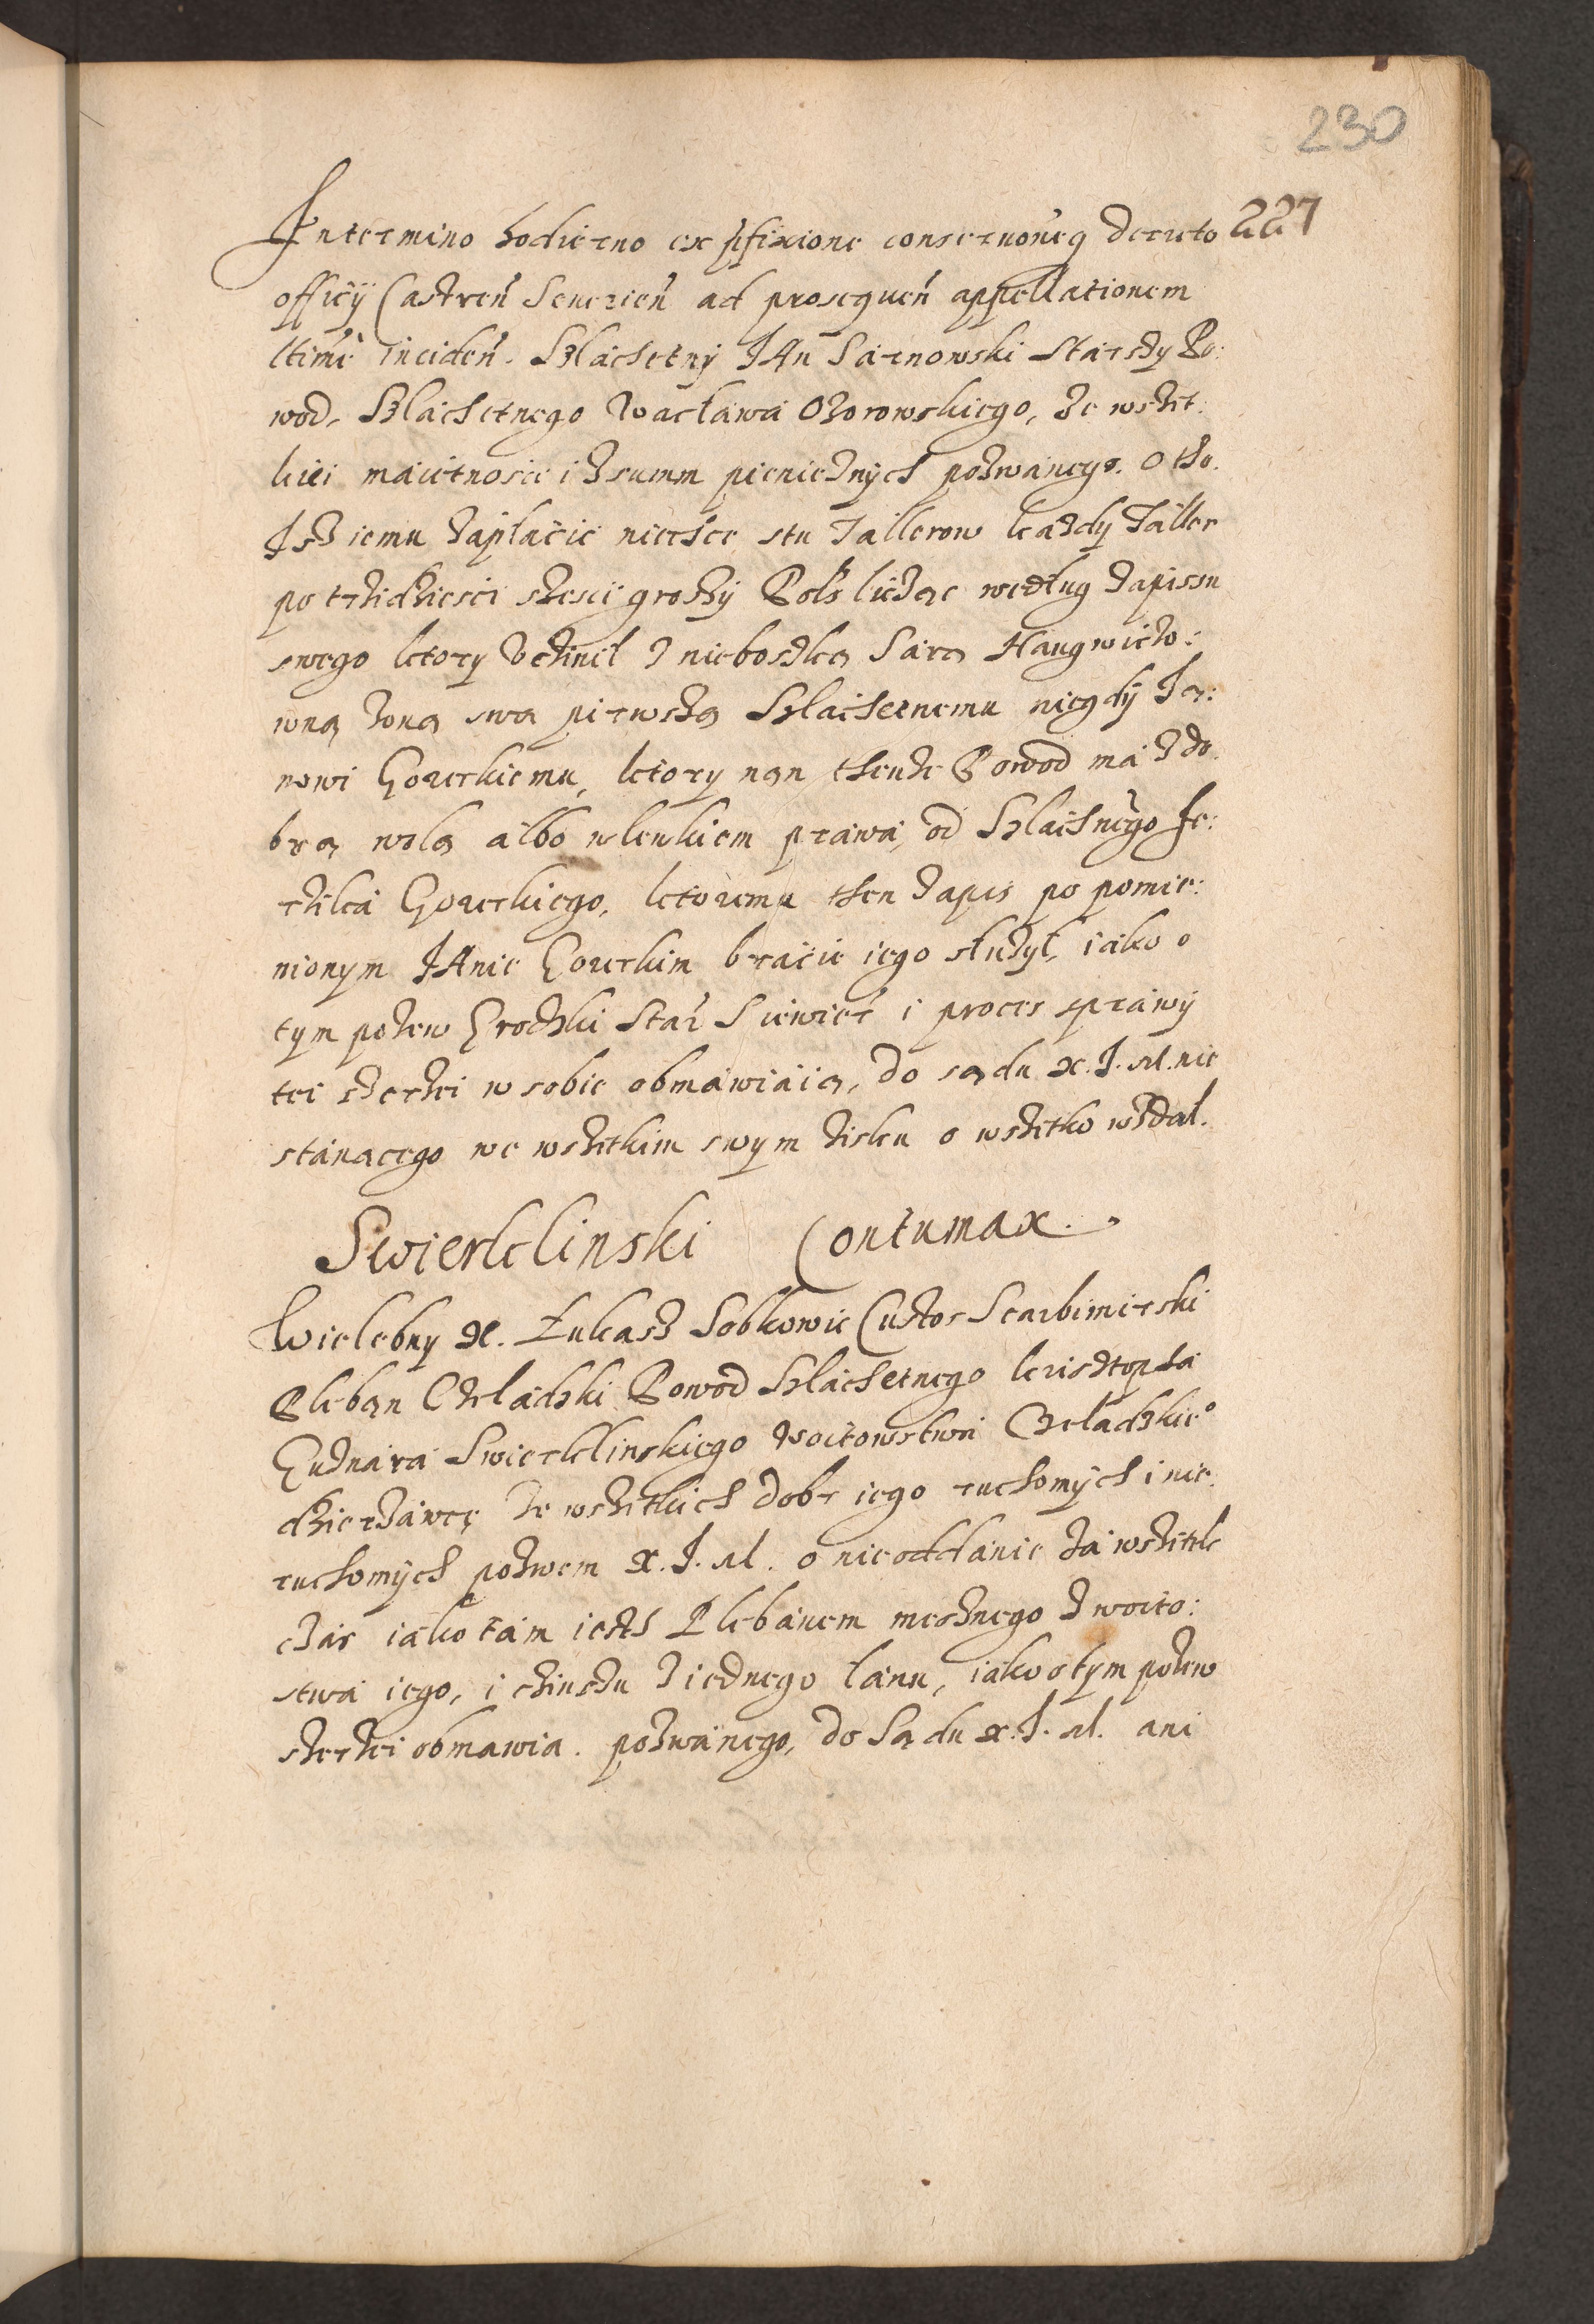 230
227
In termino hodierno ex pfixione conservoneq Decreto
officÿ Castreń Severień ad prosequeń appellationem
ltimé incideń. Szlachetnÿ JAn Sarnowski Starszy Po:
wod, Szlachetnego Wacława Ożorowskiego, ze wszit:
kiei maiętnoscÿ i z summ pieniężnÿch pozwanego. O tho.
Isz iemu zapłacic niechce stu Tallerow każdy Taller
po trzidziesci szesci groszÿ Pols licząc według zapissu
swego ktory vczinił z nieboszką Sarą Haugwiczo:
wną żoną swą pierwszą Szlachetnemu niegdÿ Ja:
nowi Goreckiemu, ktory nan thenże Powod ma z do
brą wolą albo wlewkiem prawa, od Szlachnego Je:
rzika Goreckiego, ktoremu then zapis po pomie:
nionym JAnie Goreckim bracie iego służył, iako o
tym pozew Grodzki Star Siewier i proces sprawÿ
tei szerzei w sobie obmawiaią, do sądu X. J. M. nie
stanącego we wszitkim swym zisku o wszitko wzdał.
Swierklinski Contumax.
Wielebny X. Łukasz Sobkowic Custos Scarbimirski
Pleban Czeladzki Powod Szlachetnego krisztopha
Gusnara Swierklinskiego Woitowstwa Czeladzkieo
dzierżawcę ze wszitkich dobr iego ruchomÿch i nie
ruchomÿch pozwem X. J. M. o nieoddanie za wszitek
czas iako tam iesth Plebanem mesznego z woito:
stwa iego, i czinszu z iednego łanu, iako o tym pozew
szerzei obmawia. pozwanego, do Sądu X. J. M. ani